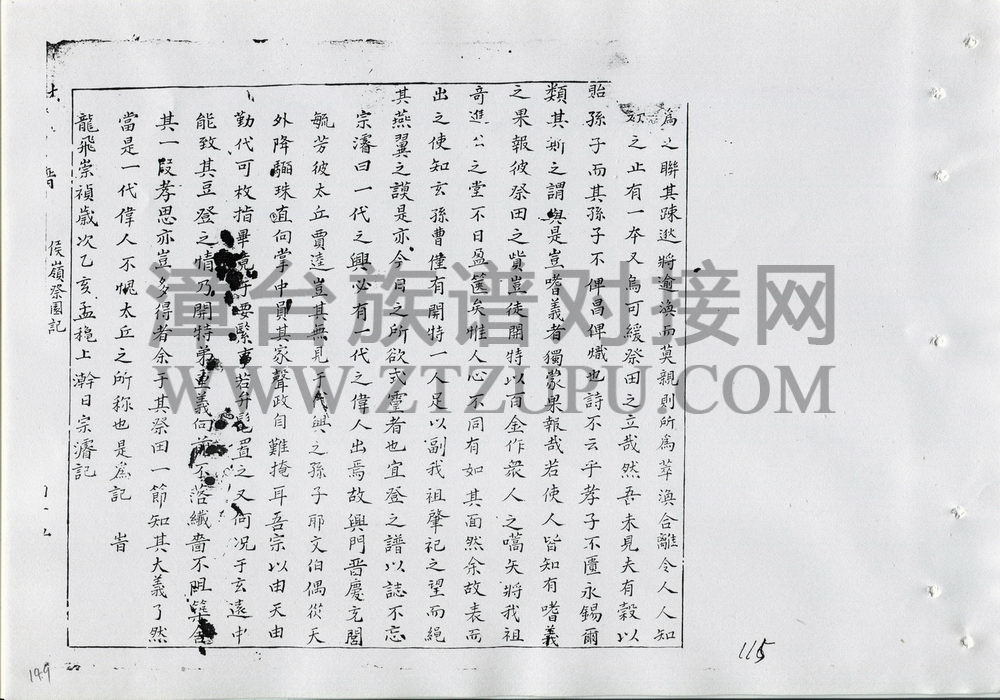 為之聯其踈逖將逾渙而莫親則所為萃渙合離令人人知
之止有一本又烏可緩祭田之立哉然吾未見夫有穀以
貽孫子而其孫子不俾昌俾熾也詩不云乎孝子不匱永錫爾
類其斯之謂與是豈嗜義者獨蒙果報哉若使人皆知有嗜義
之果報彼祭田之貲豈徒開特以百金作衆人之嚆矢將我祖
奇進公之堂不日盈篋矣惟人心不同有如其面然余故表而
出之使知玄孫曹僅有開特一人足以副我祖肇祀之望而繩
其燕翼之謨是亦今日之所欲式靈者也宜登之譜以誌不忘
宗濬曰一代之興必有一代之偉人出焉故興門晋慶充閭
毓芳彼太丘賈逵豈其無見于代興之孫子耶文伯偶從天
外降驪珠直向掌中員其家聲政自難掩耳吾宗以由天由
勤代可枚指畢竟于要緊事若升髦置之又何况于玄遠中
能致其豆登之情乃開特弟重義向前不落纖嗇不阻筑舍
其一段孝思亦豈多得者余于其祭田一節知其大義了然
當是一代偉人不愧太丘之所称也是為記 旹
龍飛崇禎歲次乙亥孟穐上澣日宗濬記
侯嶺祭園記
115
149
漳台族谱对接网
WWW.ZTZUPU.COM